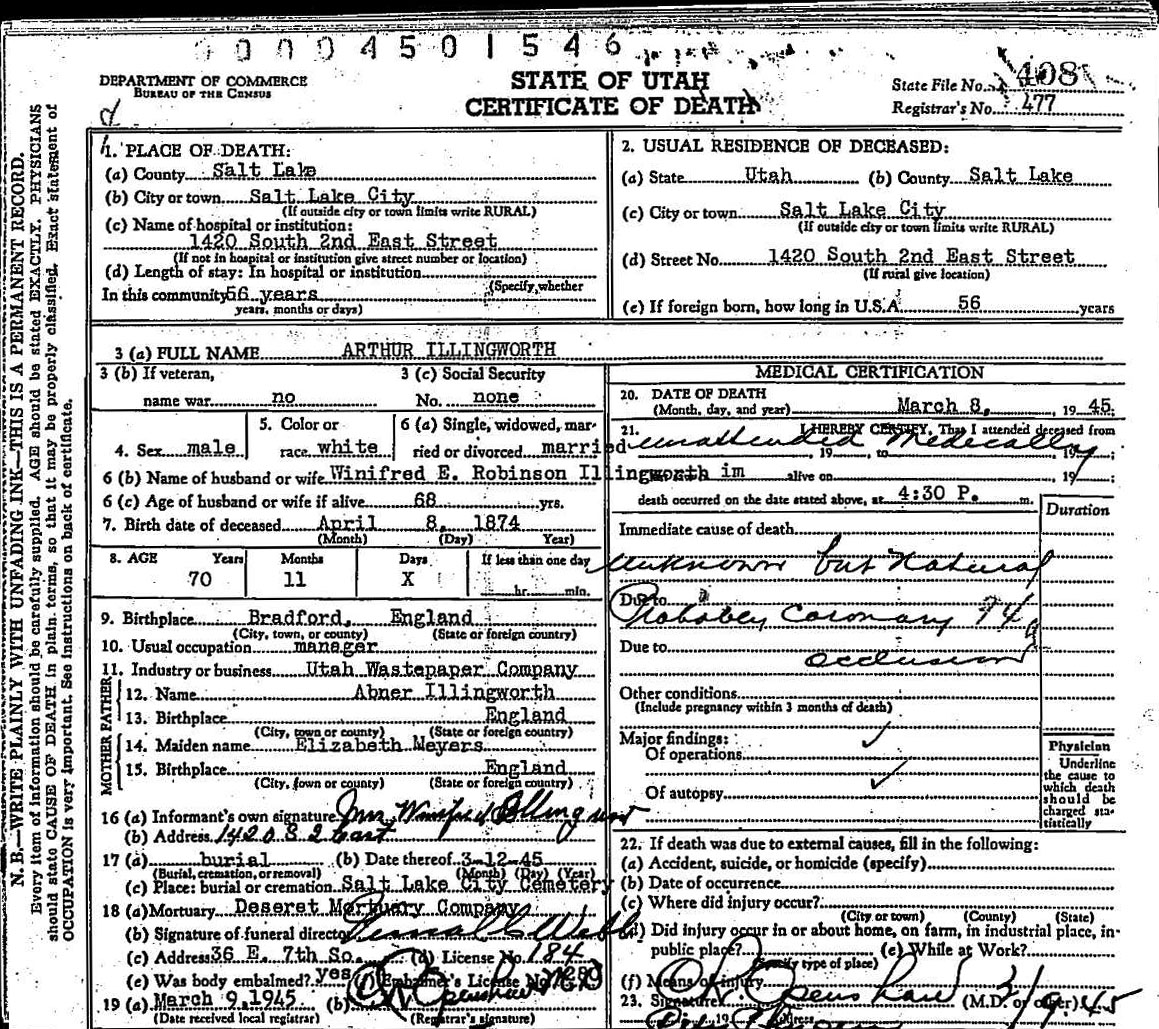 00004501546
DEPARTMENT OF COMMERCE
BUREAU OF THE CENSUS
STATE OF UTAH
CERTIFICATE OF DEATH
State File No. 408
Registrar's No. 477
N. B.—WRITE PLAINLY WITH UNFADING INK—THIS IS A PERMANENT RECORD.
Every item of information should be carefully supplied. AGE should be stated EXACTLY. PHYSICIANS
should state CAUSE OF DEATH in plain terms, so that it may be properly classified. Exact statement of
OCCUPATION is very important. See instructions on back of certificate.
1. PLACE OF DEATH:
(a) County Salt Lake
(b) City or town Salt Lake City
(If outside city or town limits write RURAL)
(c) Name of hospital or institution:
1420 South 2nd East Street
(If not in hospital or institution give street number or location)
(d) Length of stay: In hospital or institution
(Specify whether
In this community 56 years
years, months or days)
2. USUAL RESIDENCE OF DECEASED:
(a) State Utah (b) County Salt Lake
(c) City or town Salt Lake City
(If outside city or town limits write RURAL)
(d) Street No. 1420 South 2nd East Street
(If rural give location)
(e) If foreign born, how long in U.S.A. 56 years
3 (a) FULL NAME ARTHUR ILLINGWORTH
3 (b) If veteran, 3 (c) Social Security
name war no No. none
4. Sex male 5. Color or race white 6 (a) Single, widowed, married or divorced married
6 (b) Name of husband or wife Winifred E. Robinson Illingworth
6 (c) Age of husband or wife if alive 68 yrs.
7. Birth date of deceased April 8, 1874
(Month) (Day) Year)
8. AGE Years Months Days If less than one day
70 11 X hr. min.
9. Birthplace Bradford, England
(City, town, or county) (State or foreign country)
10. Usual occupation manager
11. Industry or business Utah Wastepaper Company
FATHER
12. Name Abner Illingworth
13. Birthplace England
(City, town or county) (State or foreign country)
MOTHER
14. Maiden name Elizabeth Meyers
15. Birthplace England
(City, town or county) (State or foreign country)
16 (a) Informant's own signature Mrs Winifred Illingworth
(b) Address 1420 S 2 East
17 (a) burial (b) Date thereof 3-12-45
(Burial, cremation, or removal) (Month) (Day) (Year)
(c) Place: burial or cremation Salt Lake City Cemetery
18 (a) Mortuary Deseret Mortuary Company
(b) Signature of funeral director
(c) Address 36 E. 7th So. (d) License No. 184
(e) Was body embalmed? yes (f) Embalmer's License No.
19 (a) March 9, 1945 (b)
(Date received local registrar) (Registrar's signature)
MEDICAL CERTIFICATION
20. DATE OF DEATH
(Month, day, and year) March 8, 1945;
21. I HEREBY CERTIFY, That I attended deceased from
unattended medically
, 19 , to , 19 ;
im alive on , 19 ;
death occurred on the date stated above, at 4:30 P. m.
Duration
Immediate cause of death
unknown but natural
Due to
Probabley coronary 94a
Due to
occlusion
Other conditions
(Include pregnancy within 3 months of death)
Major findings:
Of operations
Of autopsy
Physician
Underline
the cause to
which death
should be
charged sta-
tistically
22. If death was due to external causes, fill in the following:
(a) Accident, suicide, or homicide (specify)
(b) Date of occurrence
(c) Where did injury occur?
(City or town) (County) (State)
(d) Did injury occur in or about home, on farm, in industrial place, in-
public place? (e) While at Work?
(Specify type of place)
(f) Means of injury
23. Signature (M.D. or other) 3/9-45